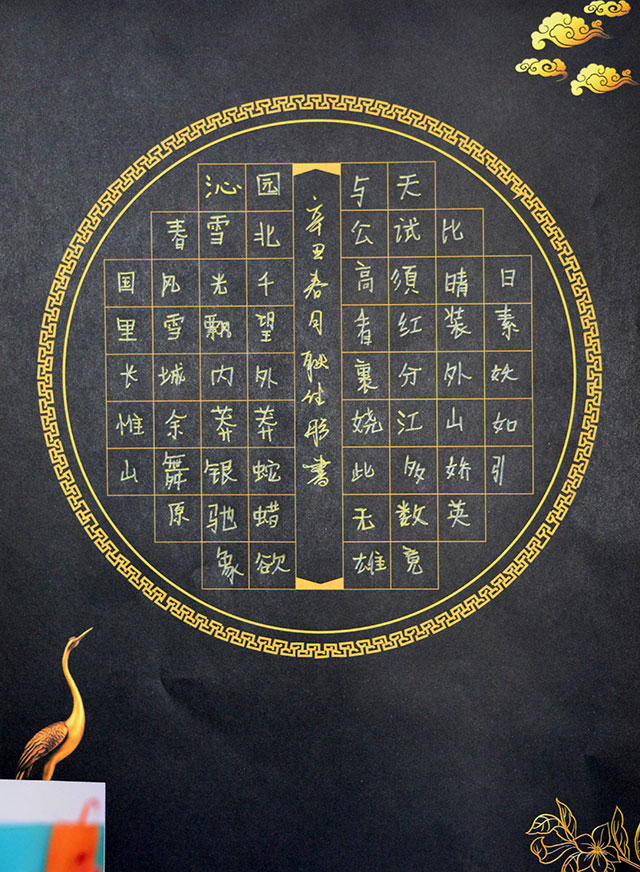 沁园
春雪北
国风光千
里雪飘望
长城内外
惟余莽莽
山舞银蛇
原驰蜡
象欲
与天
公试比
高须晴日
看红装素
裹分外妖
娆江山如
此多娇引
无数英
雄竟
辛丑春月耿仕彤書